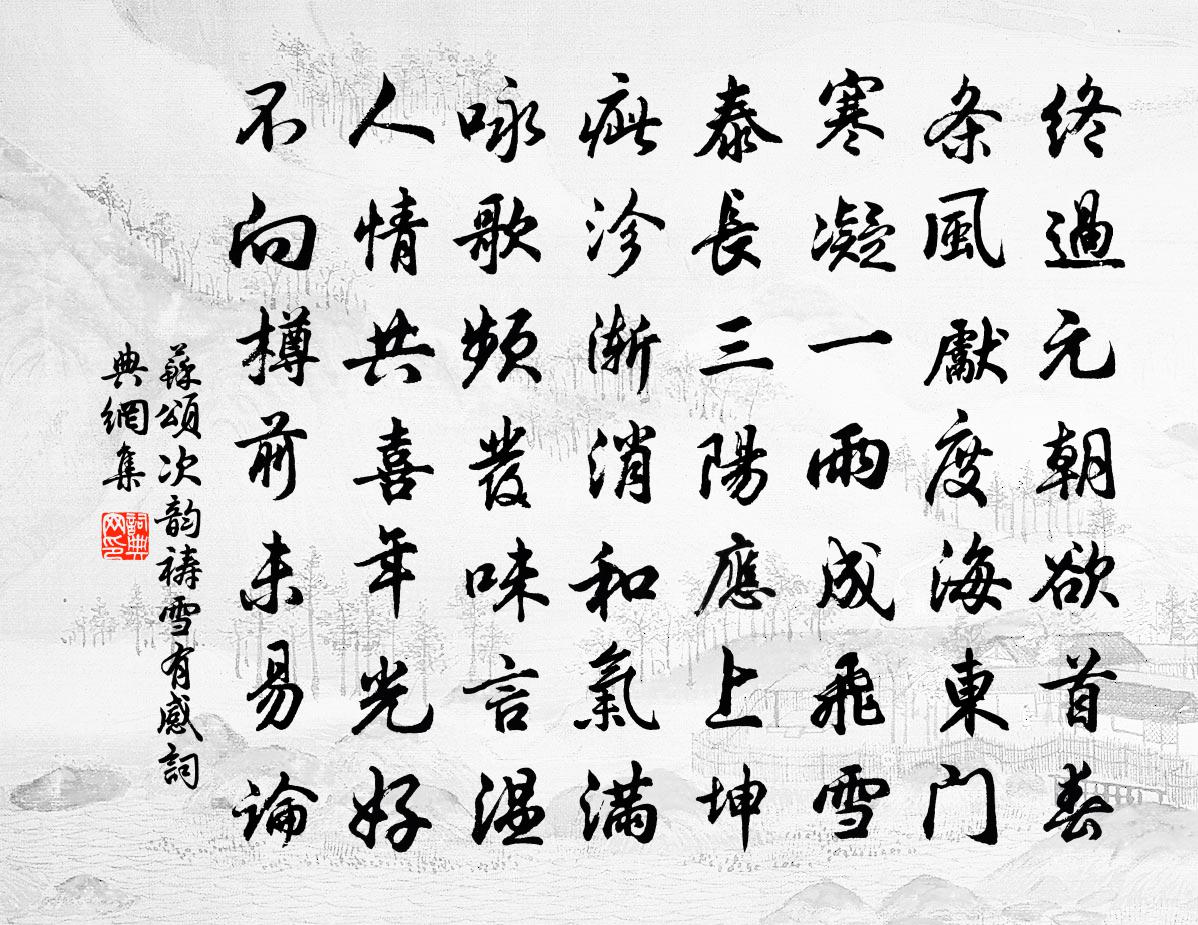 终過元朝欲首春
条風獻度海東门
寒凝一雨成飛雪
泰長三陽應上坤
疵沴漸消和氣满
咏歌頻發味言温
人情共喜年光好
不向樽前未易論
蘇頌次韵祷雪有感詞
典網集
詞典
网印